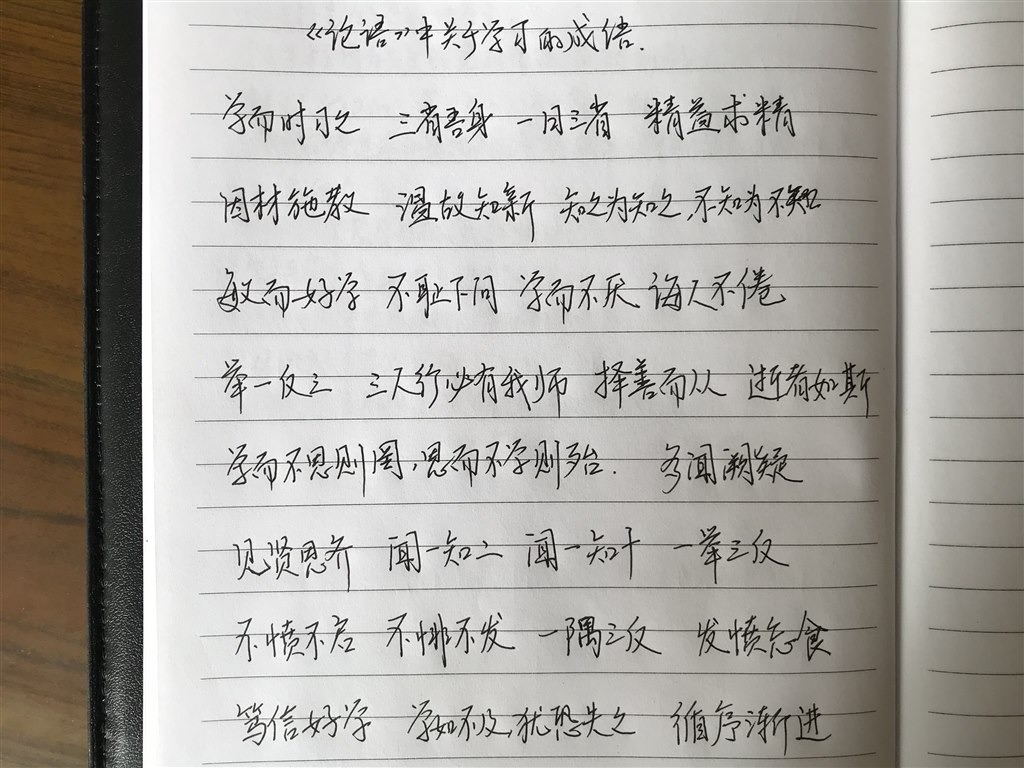 《论语》中关于学习的成语.
学而时习之 三省吾身 一日三省 精益求精
因材施教 温故知新 知之为知之,不知为不知
敏而好学 不耻下问 学而不厌 诲人不倦
举一反三 三人行必有我师 择善而从 逝者如斯
学而不思则罔,思而不学则殆. 多闻阙疑
见贤思齐 闻一知二 闻一知十 一举三反
不愤不启 不悱不发 一隅三反 发愤忘食
笃信好学 学如不及,犹恐失之 循序渐进